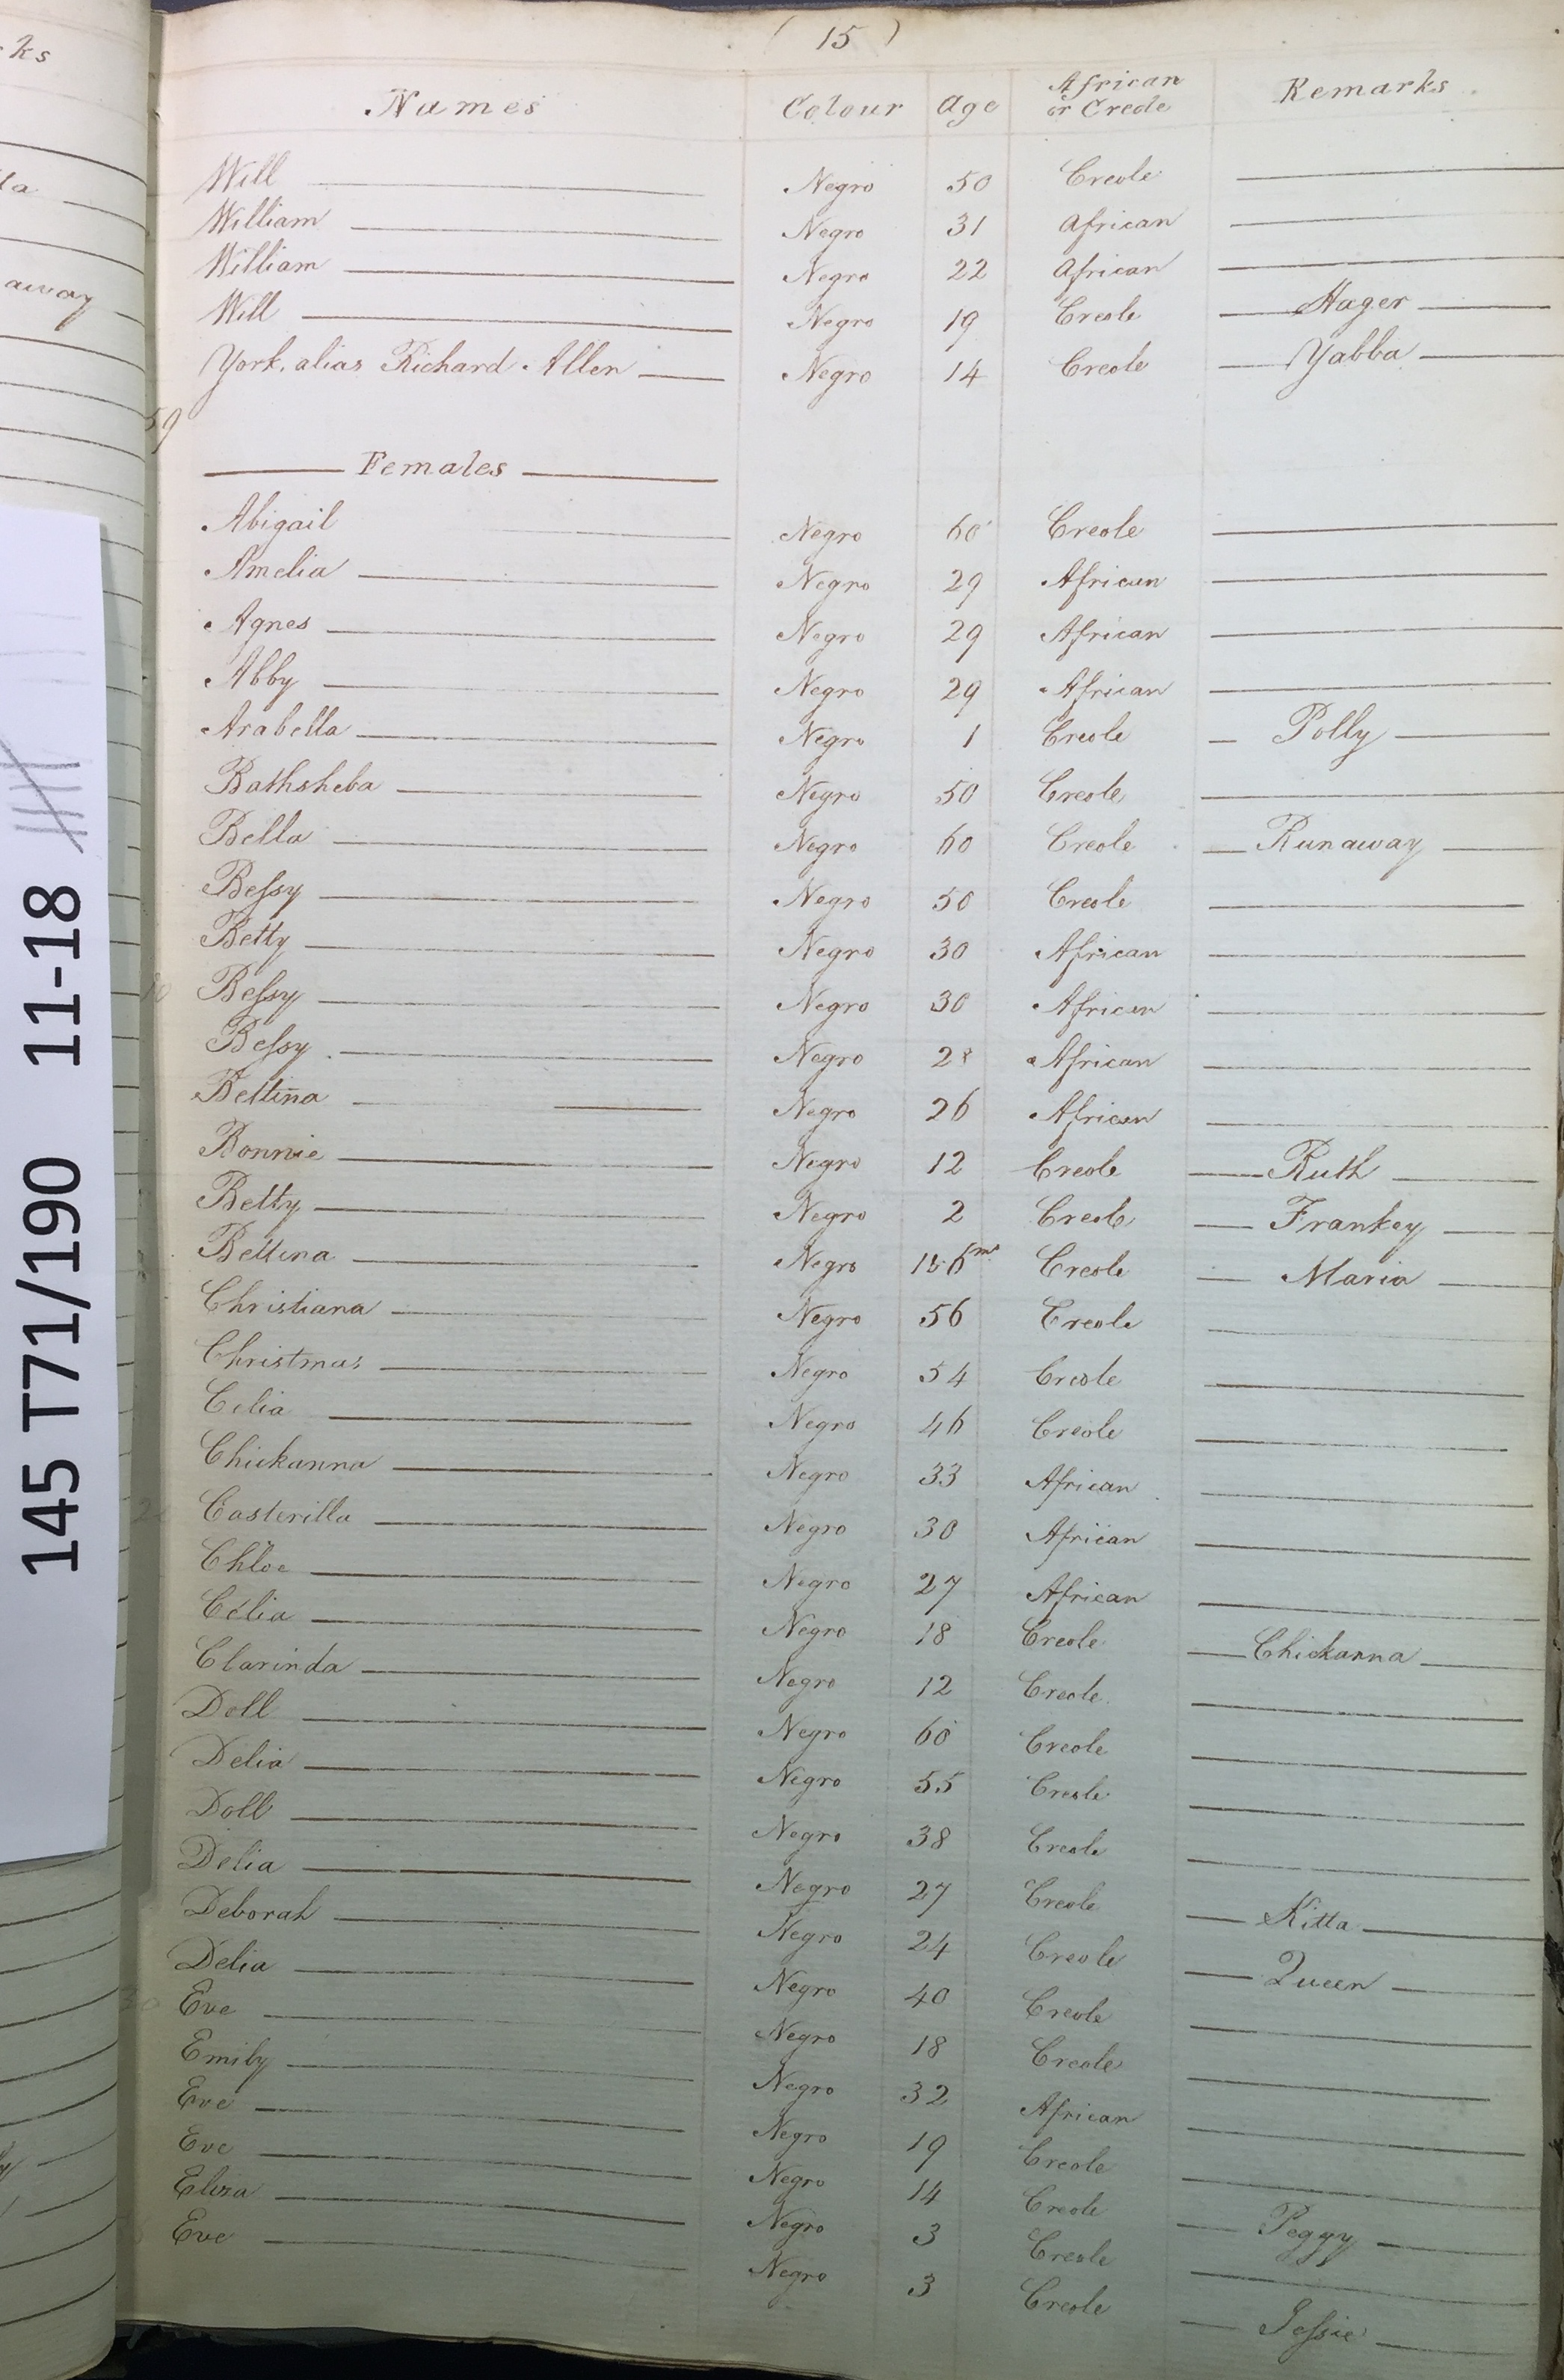 (15)
Names Colour Age African or Creole Remarks
Will Negro 50 Creole
William Negro 31 African
William Negro 22 African
Will Negro 19 Creole Hager
York, alias Richard Allen Negro 14 Creole Yabba
59
Females
Abigail Negro 60 Creole
Amelia Negro 29 African
Agnes Negro 29 African
Abby Negro 29 African
Arabella Negro 1 Creole Polly
Bathsheba Negro 50 Creole
Bella Negro 60 Creole Runaway
Beſsy Negro 50 Creole
Betty Negro 30 African
10 Beſsy Negro 30 African
Beſsy Negro 28 African
Bettina Negro 26 African
Bonnie Negro 12 Creole Ruth
Betty Negro 2 Creole Frankey
Bettina Negro Creole Maria
Christiana Negro 56 Creole
Christmas Negro 54 Creole
Celia Negro 46 Creole
Chickanna Negro 33 African
20 Casterilla Negro 30 African
Chloe Negro 27 African
Celia Negro 18 Creole Chickanna
Clarinda Negro 12 Creole
Doll Negro 60 Creole
Delia Negro 55 Creole
Doll Negro 38 Creole
Delia Negro 27 Creole Kitta
Deborah Negro 24 Creole Queen
Delia Negro 40 Creole
30 Eve Negro 18 Creole
Emily Negro 32 African
Eve Negro 19 Creole
Eve Negro 14 Creole Peggy
Eliza Negro 3 Creole
Eve Negro 3 Creole Jeſsie
ks
la
away
145 T71/190 11-18